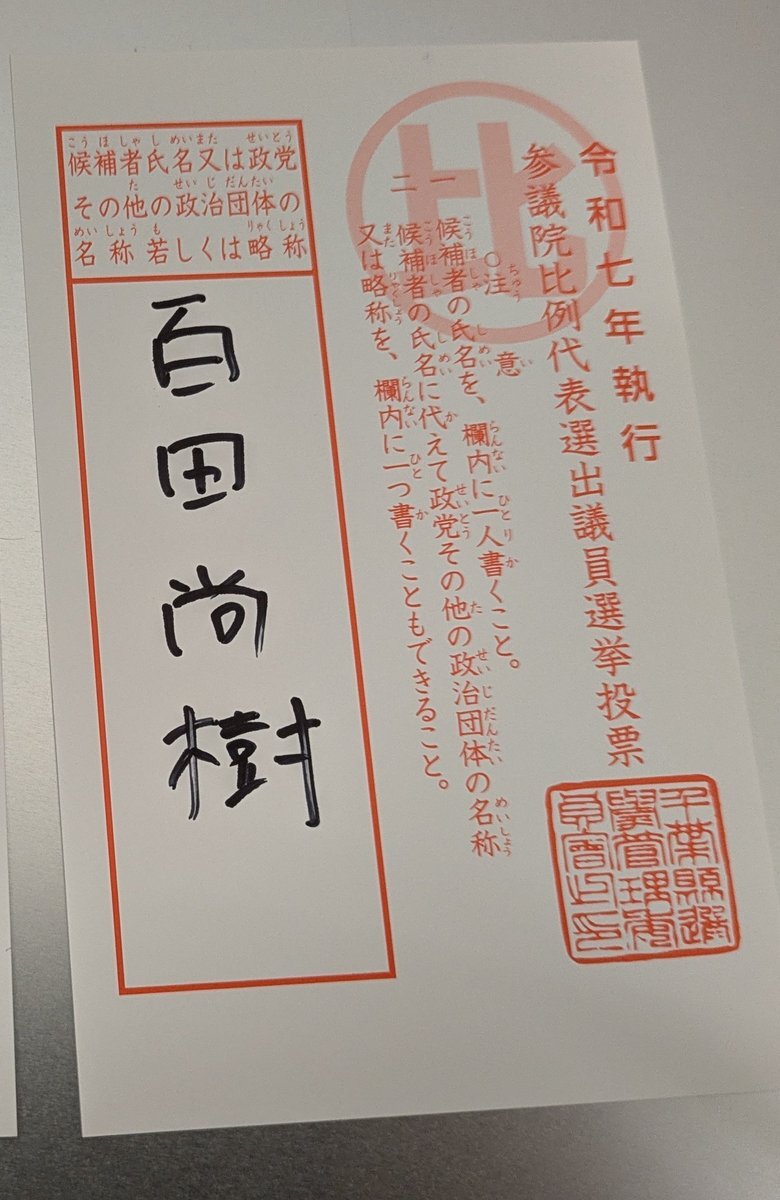 令和七年執行
参議院比例代表選出議員選挙投票
比
○注意
一 候補者の氏名を、欄内に一人書くこと。
二 候補者の氏名に代えて政党その他の政治団体の名称
又は略称を、欄内に一つ書くこともできること。
候補者氏名又は政党
その他の政治団体の
名称若しくは略称
百田尚樹
千葉縣選
擧管理委
員會之印